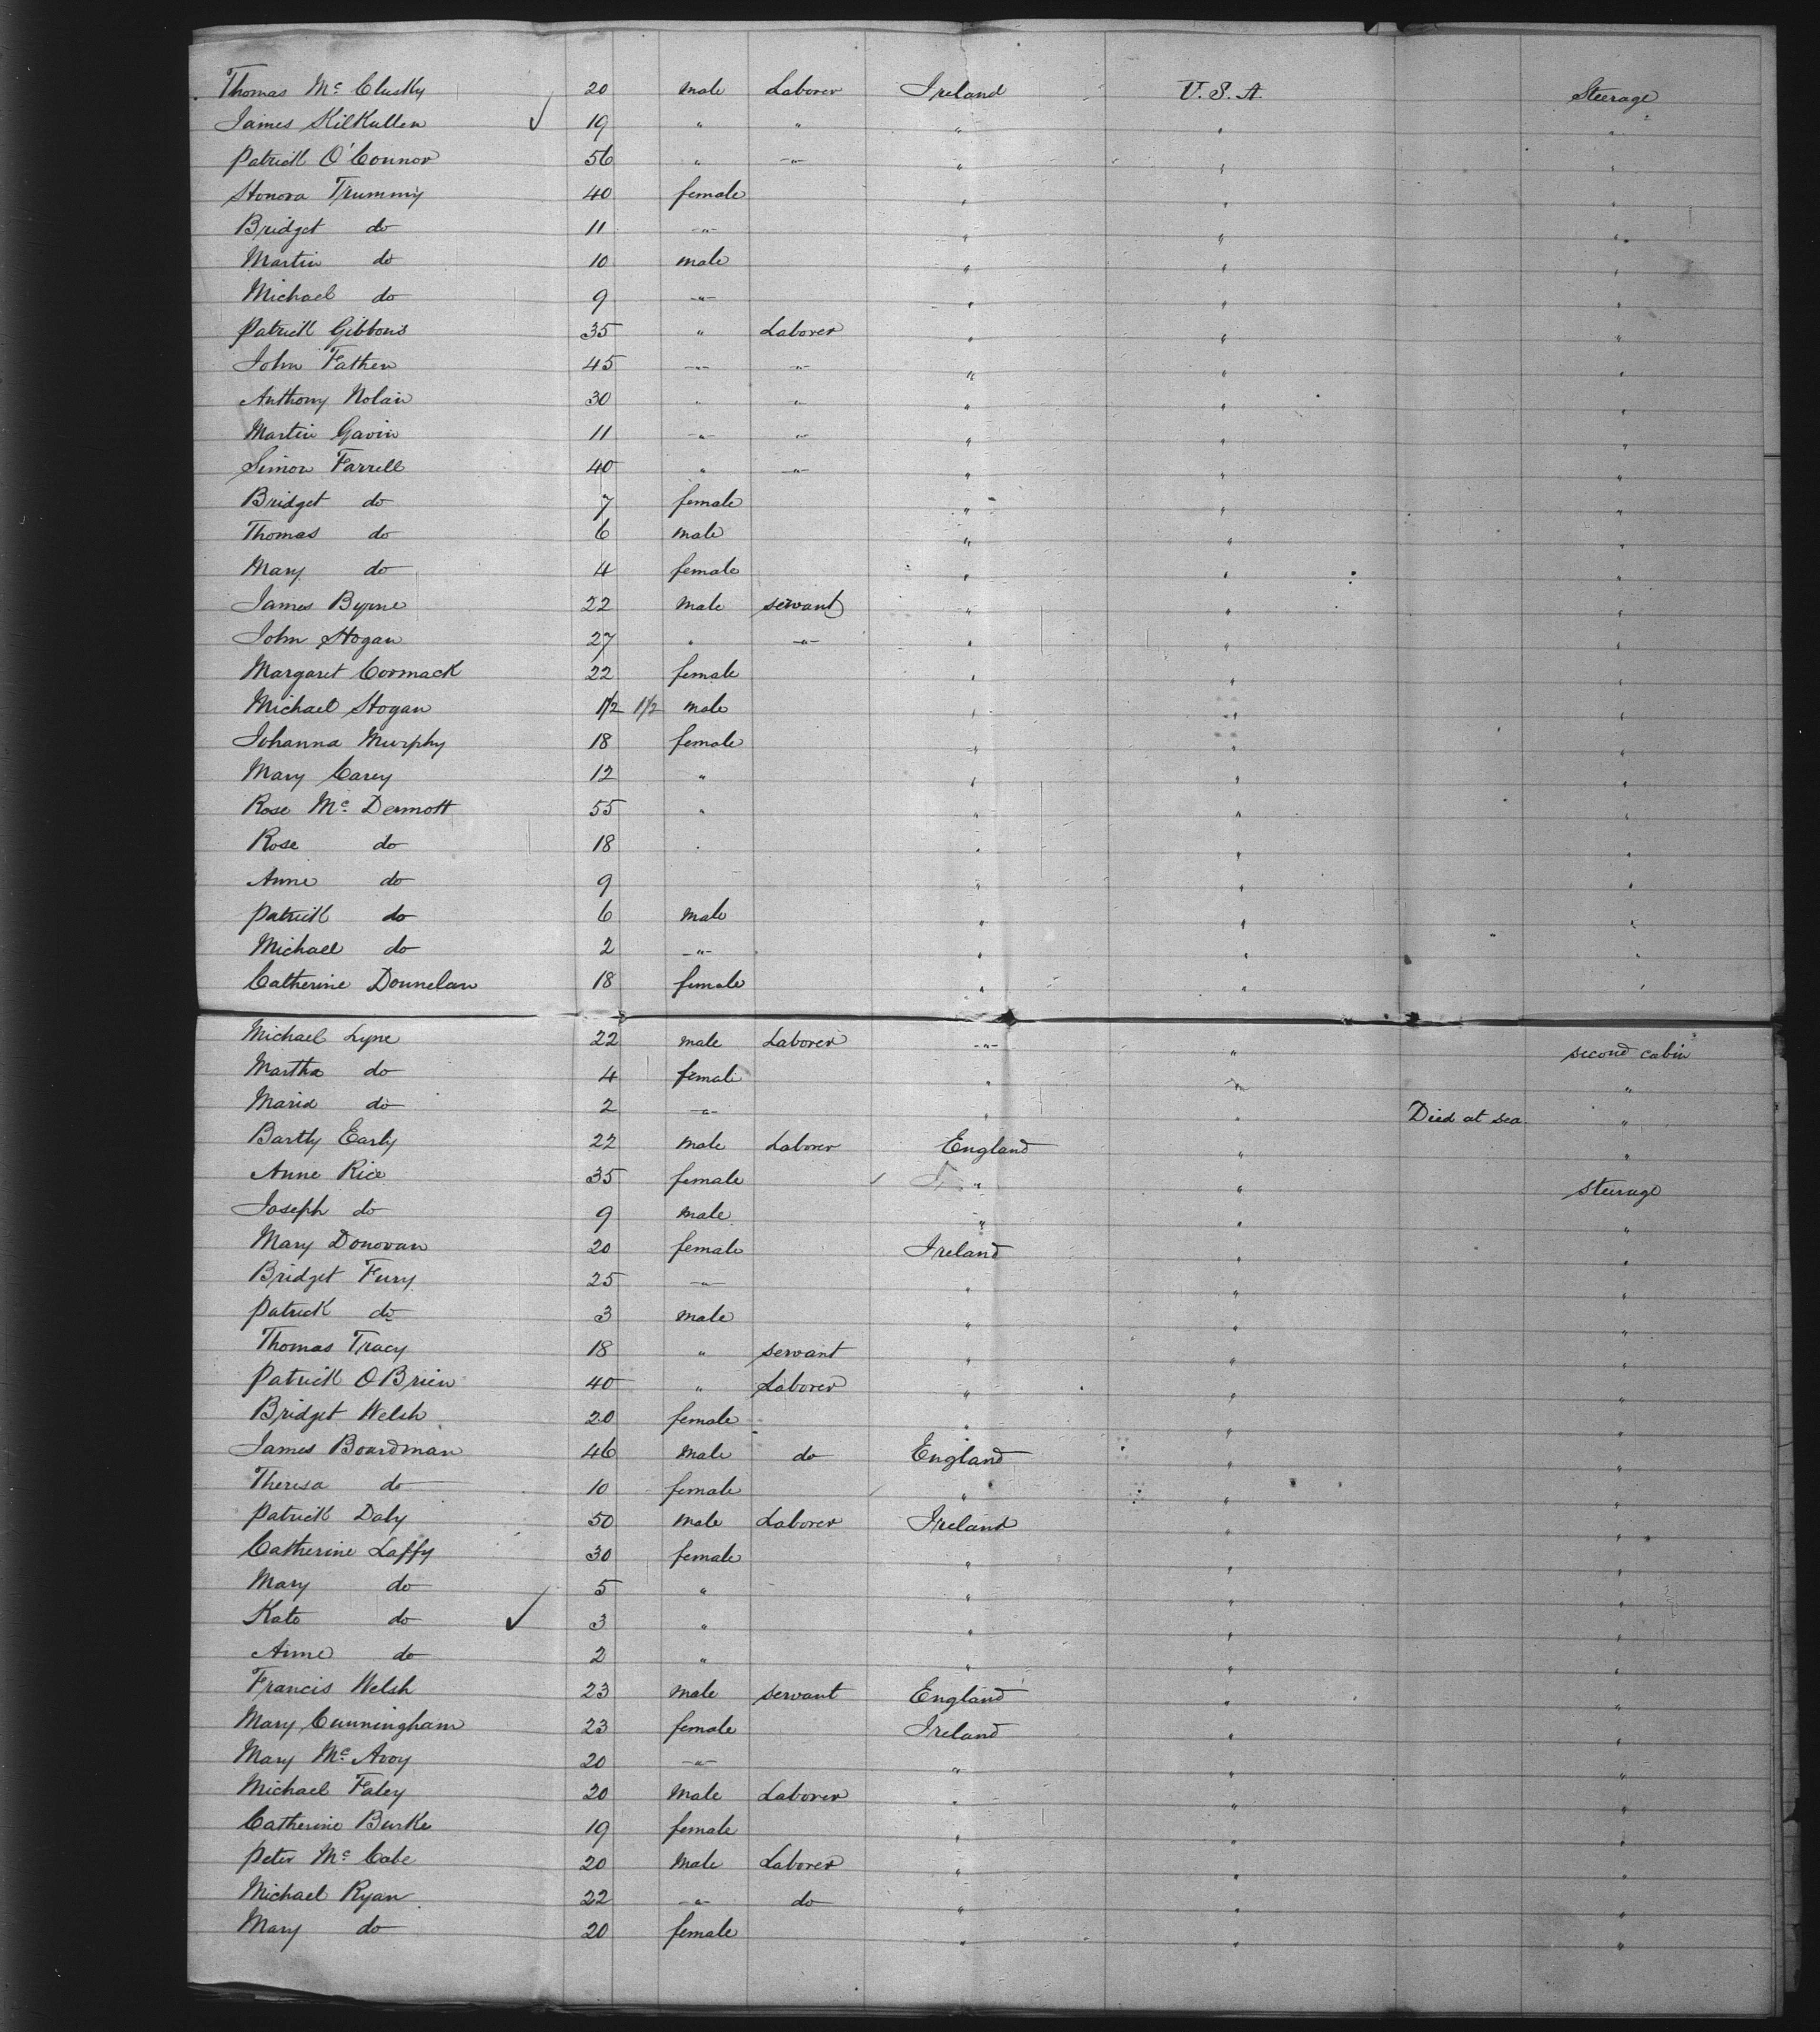 Thomas Mc Clusky 20 male Laborer Ireland U.S.A. Steerage
James KilKullen ✓ 19 " " " " "
Patrick O'Connor 56 " -"- " " "
Honora Trummy 40 female " " "
Bridget do 11 -"- " " "
Martin do 10 male " " "
Michael do 9 -"- " " "
Patrick Gibbons 35 " Laborer " " "
John Fathen 45 -"- -"- " " "
Anthony Nolan 30 " " " " "
Martin Gavin 11 -"- -"- " " "
Simon Farrell 40 " -"- " " "
Bridget do 7 female " " "
Thomas do 6 male " " "
Mary do 4 female " " "
James Byrne 22 male servant " " "
John Hogan 27 " -"- " " "
Margaret Cormack 22 female " " "
Michael Hogan 1/2 1/2 male " " "
Johanna Murphy 18 female " " "
Mary Carey 12 " " " "
Rose Mc Dermott 55 " " " "
Rose do 18 " " " "
Anne do 9 " " "
Patrick do 6 male " " "
Michael do 2 -"- " " "
Catherine Donnelan 18 female " " "
Michael Lyne 22 male Laborer -"- " second cabin
Martha do 4 female " " "
Maria do 2 -"- " " Died at sea "
Bartly Early 22 male Laborer England " "
Anne Rice 35 female " " steerage
Joseph do 9 male " " "
Mary Donovan 20 female Ireland " "
Bridget Fury 25 -"- " " "
Patrick do 3 male " " "
Thomas Tracy 18 " servant " " "
Patrick O Brien 40 " Laborer " " "
Bridget Welsh 20 female " " "
James Boardman 46 male do England " "
Theresa do 10 female " " "
Patrick Daly 50 male Laborer Ireland " "
Catherine Laffy 30 female " " "
Mary do 5 " " " "
Kate do ✓ 3 " " " "
Anne do 2 " " " "
Francis Welsh 23 male servant England " "
Mary Cunningham 23 female Ireland " "
Mary Mc Avoy 20 -"- " " "
Michael Faley 20 Male Laborer " " "
Catherine Burke 19 female " " "
Peter Mc Cabe 20 Male Laborer " " "
Michael Ryan 22 -"- do " " "
Mary do 20 female " " "